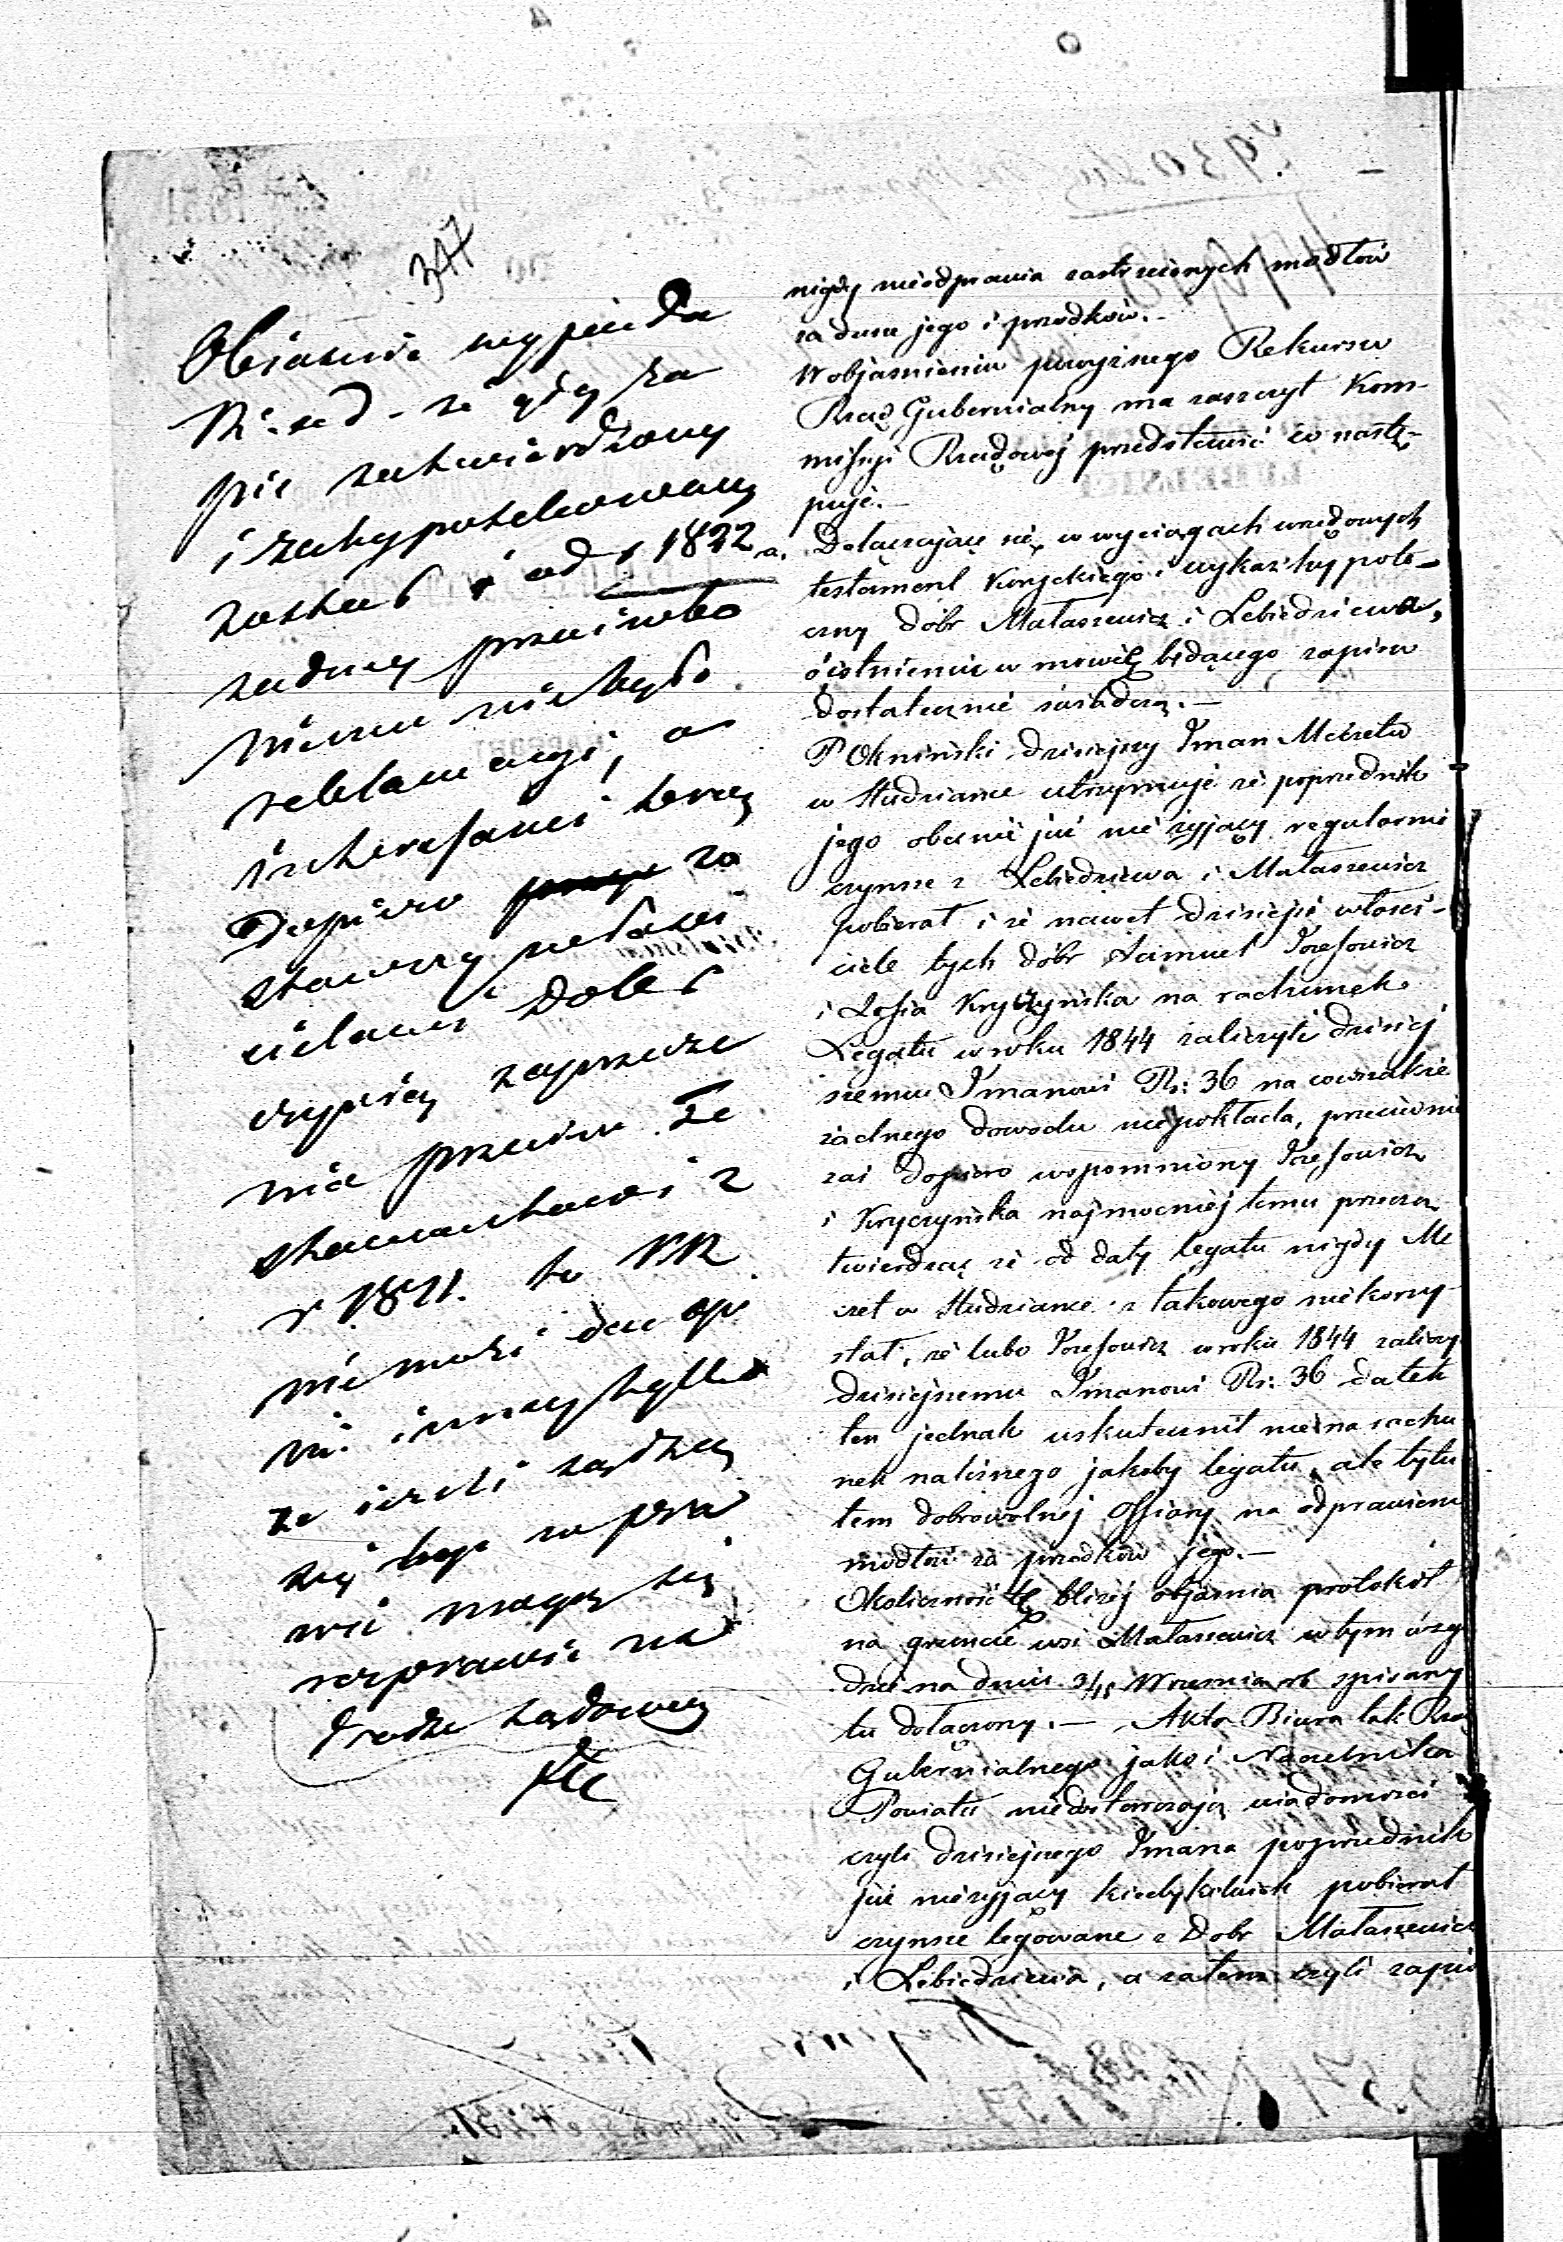 347
Objaśnić wypada
Rz: ad - że gdy za
pis zatwierdzony
i zahypotekowany
został i od r 1822
żadney przeciwko
niemu nie było
reklamacyi, a
interesanci teraz
Dopiero za
stawszy właści
cielami Dóbr
czynią zaprzecze
nie przeciw Te
stamentowi z
r 1821. to KR
nie może dać opi
nii inney tylko
że ieżeli sądzą
się być w pra
wie mogą się
rozprawić na
drodze sądowey
nigdy nieodprawia zastrzeżonych modłów
za dusze jego i przodków.-
W objaśnieniu powyższego Rekursu
Rząd Gubernialny ma zaszczyt Kom-
missyi Rządowej przedstawić co nastę-
puje.-
Dołączające się w wyciągach urzędowych
testament Kuryckiego i wykaz hypote-
czny dóbr Małaszewicz i Lebiedziewa,
o istnieniu w mowie będącego zapisu
dostatecznie świadczą.-
P Okniński dzisiejszy Iman Meczetu
w Studziance utrzymuje że poprzednik
jego obecnie już nie żyjący regularnie
czynsze z Lebiedziewa i Małaszewicz
pobierał i że nawet dzisiejsi właści-
ciele tych dóbr Samuel Józefowicz
i Zofia Kryczyńska na rachunek
Legatu w roku 1844 zaliczyli dzisiej
szemu Imanowi Rs: 36 na co wszakże
żadnego dowodu niepokłada, przeciwnie
zaś dopiero wspomniony Józefowicz
i Kryczyńska najmocniej temu przeczą
twierdząc że od daty legatu nigdy Me
czet w Studziance z takowego niekorzy-
stał, że lubo Józefowicz w roku 1844 zaliczy
dzisiejszemu Imanowi Rs: 36 datek
ten jednak uskutecznił nie na rachu
nek należnego jakoby legatu, ale tytu
łem dobrowolnej offiary na odprawienie
modłów za przodków jego.-
Okoliczność tę bliżej objaśnia protokół
na gruncie wsi Małaszewicz w tym wzglę
dzie na dniu 3/15 Września rb spisany
tu dołączony.- Akta Biura tak Rzą
Gubernialnego jako i Naczelnika
Powiatu niedostarczają wiadomości
czyli dzisiejszego Imana poprzednik
już nieżyjący kiedykolwiek pobierał
czynsze legowane z Dobr Małaszewicz
i Lebiedziewa, a zatem czyli zapis